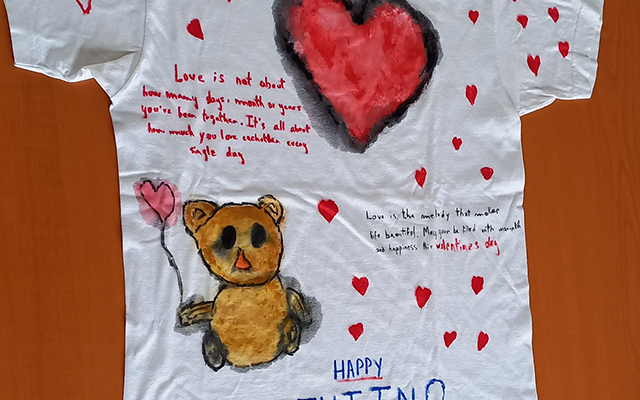 Love is not about
how many days, month or years
you've been together. It's all about
how much you love eachother every
single day
Love is the melody that makes
life beautiful. May your be filled with warmth
and happiness this valentine's day
HAPPY